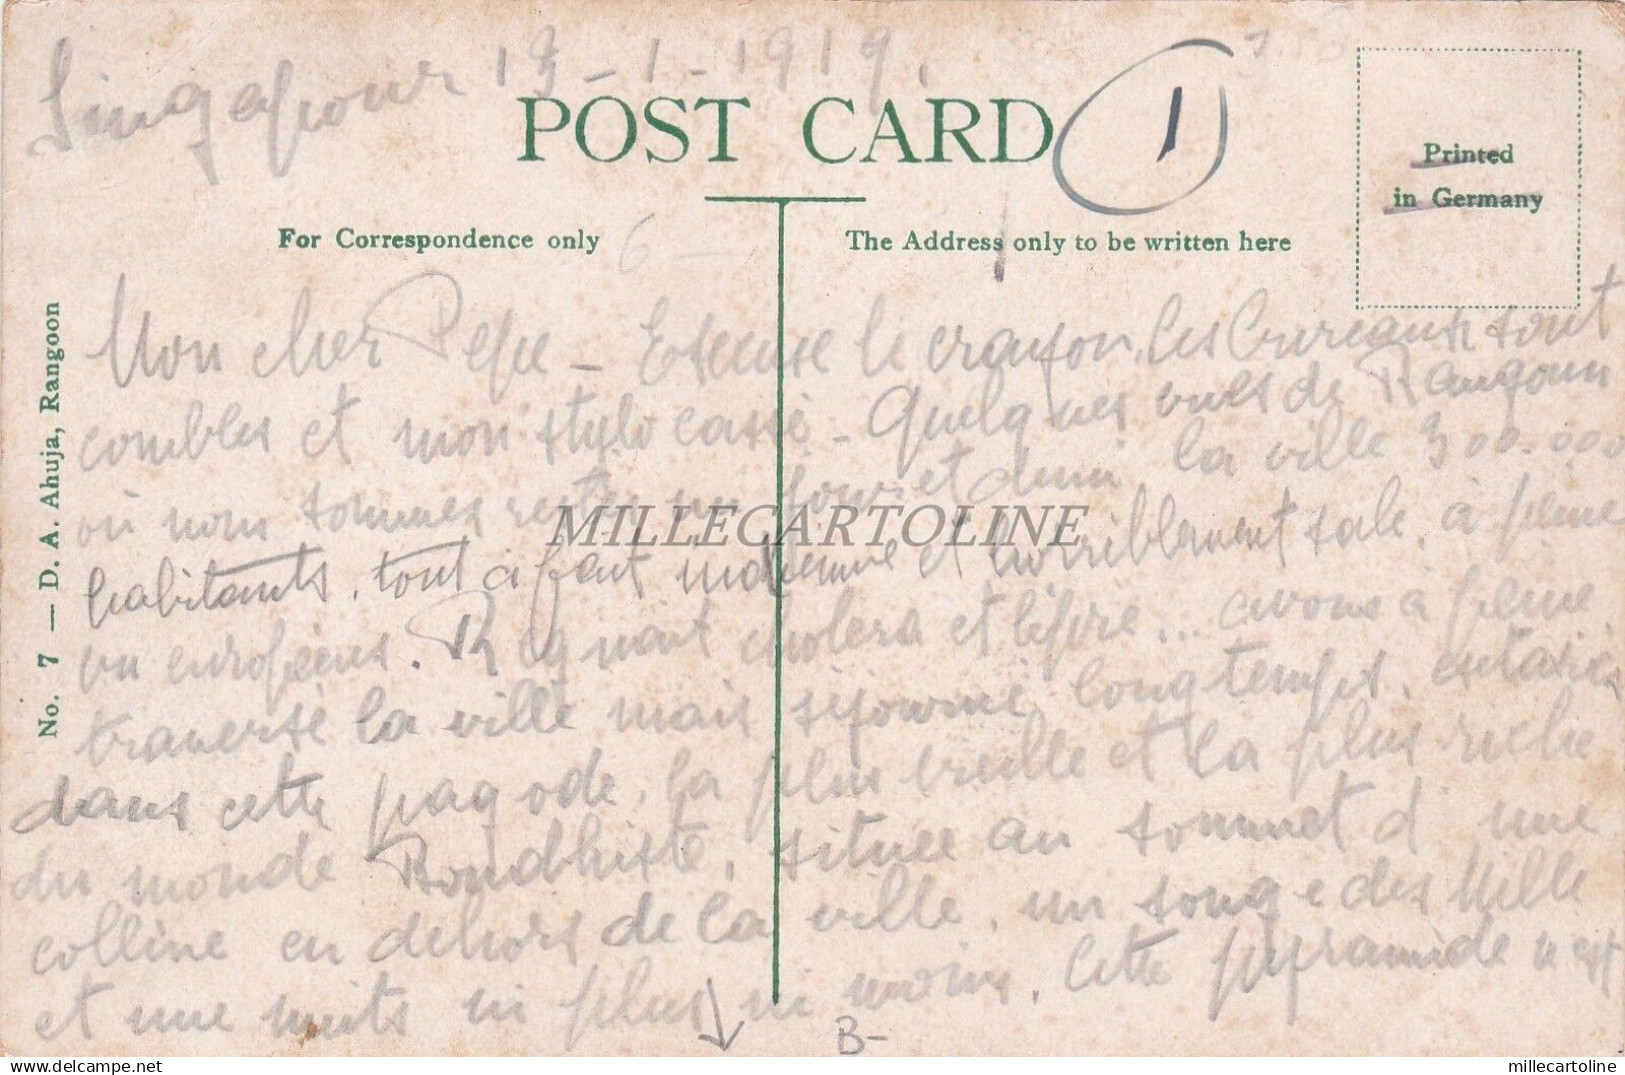 Singapour 13-1-1919.
POST CARD
1
Printed
in Germany
For Correspondence only
6 —
The Address only to be written here
No. 7 — D. A. Ahuja, Rangoon
Mon cher Pepe – Excuse le crayon, les bureaux sont
combles et mon stylo cassé – Quelques vues de Rangoun
où nous sommes restés un jour et demi la ville 300.000
habitants, tout à fait indienne et horriblement sale, à peine
un européens. Régnait cholera et lèpre... avons à peine
traversé la ville mais séjourné longtemps, extasiés
dans cette pagode, la plus vieille et la plus riche
du monde Bouddhiste, située au sommet d'une
colline en dehors de la ville, un songe des Mille
et une nuits ni plus ni moins. Cette pyramide n'est
B-
MILLECARTOLINE
delcampe.net
millecartoline